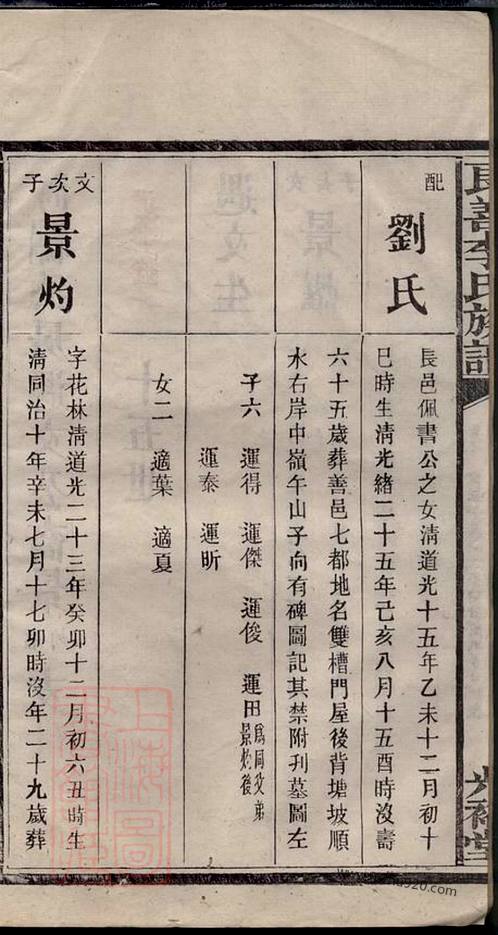 長善李氏族譜
配
劉氏
長邑佩書公之女淸道光十五年乙未十二月初十
巳時生淸光緒二十五年己亥八月十五酉時沒壽
六十五歲葬善邑七都地名雙槽門屋後背塘坡順
水右岸中嶺午山子向有碑圖記其禁附刊墓圖左
子六 運得 運傑 運俊 運田爲同父弟景灼後
運泰 運昕
女二 適葉 適夏
文次子
景灼
字花林淸道光二十三年癸卯十二月初六丑時生
淸同治十年辛未七月十七卯時沒年二十九歲葬